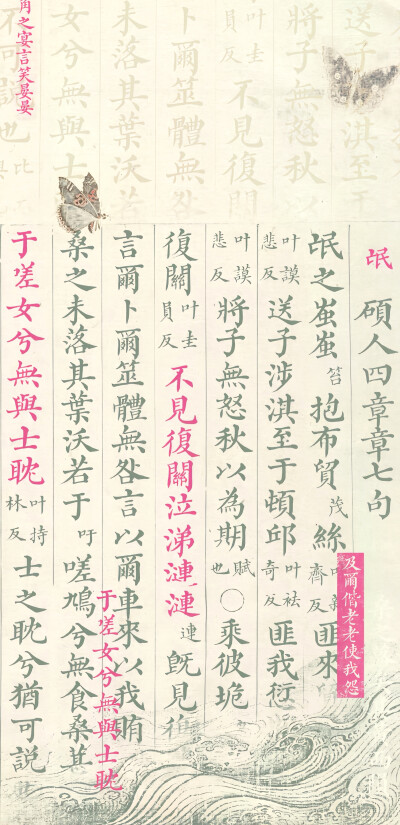 送子涉淇至于
將子無怒秋以
叶圭員反不見復關
卜爾筮體無咎
未落其葉沃
女兮無與士
不可說也
總角之宴言笑晏晏
氓
碩人四章章七句
氓之蚩蚩笞抱布貿茂絲齊反匪來
叶謨悲反送子涉淇至于頓邱叶袪奇反匪我
叶謨悲反將子無怒秋以為期賦也○乘彼垝
復關叶圭員反不見復關泣涕漣漣連既見
言爾卜爾筮體無咎言以爾車來以我賄
桑之未落其葉沃若于吁嗟鳩兮無食桑葚
于嗟女兮無與士耽叶持林反士之耽兮猶可說
及爾偕老老使我怨
于嗟女兮無與士耽